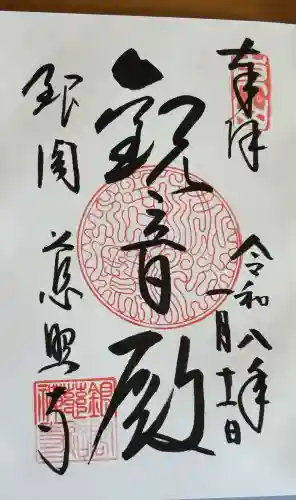 奉拝
令和八年
一月十二日
観音殿
銀閣 慈照寺